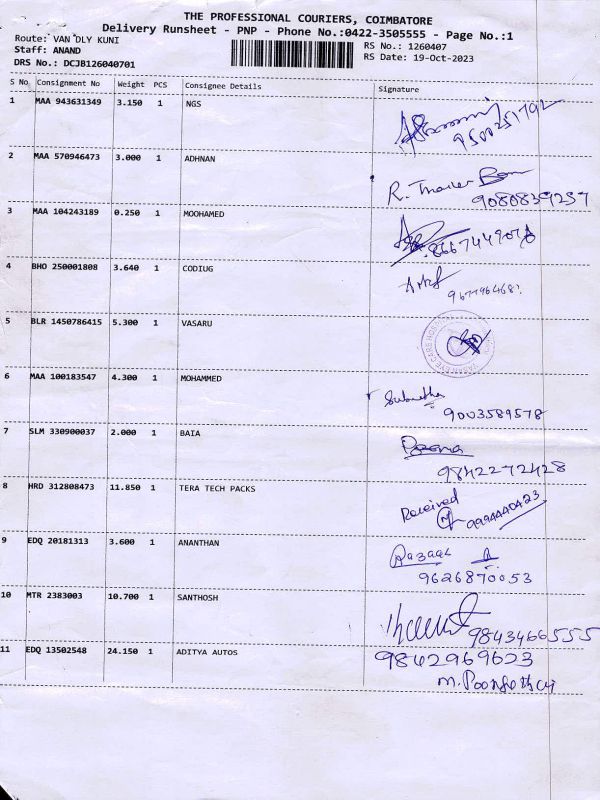 THE PROFESSIONAL COURIERS, COIMBATORE
Delivery Runsheet - PNP - Phone No.:0422-3505555 - Page No.:1
Route: VAN DLY KUNI
RS No.: 1260407
Staff: ANAND
RS Date: 19-Oct-2023
DRS No.: DCJB126040701
S No Consignment No Weight PCS Consignee Details Signature
1 MAA 943631349 3.150 1 NGS
2 MAA 570946473 3.000 1 ADHNAN
R.
9080839257
3 MAA 104243189 0.250 1 MOOHAMED
4 BHO 250001808 3.640 1 CODIUG
5 BLR 1450786415 5.300 1 VASARU
6 MAA 100183547 4.300 1 MOHAMMED
9003589578
7 SLM 330900037 2.000 1 BAIA
9842272428
8 HRD 312808473 11.850 1 TERA TECH PACKS
Received
9994440423
9 EDQ 20181313 3.600 1 ANANTHAN
9626870053
10 MTR 2383003 10.700 1 SANTHOSH
9843466555
11 EDQ 13502548 24.150 1 ADITYA AUTOS
9842969623